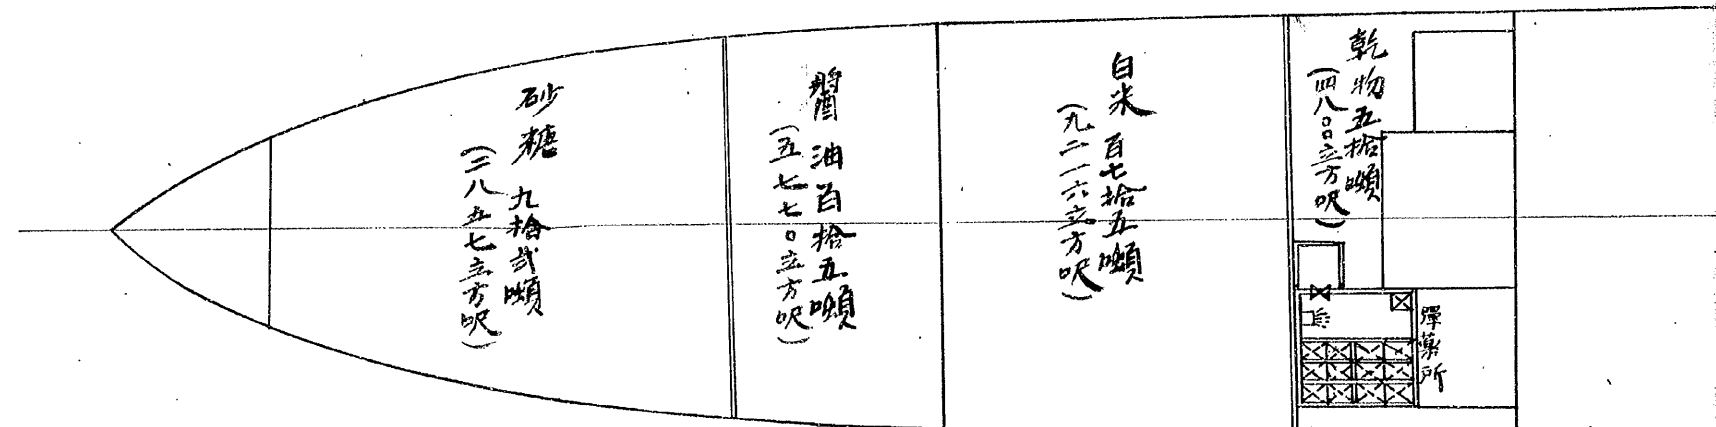 乾物五拾噸
(四八〇〇立方呎)
白米 百七拾五噸
(九二一六立方呎)
醬油百拾五噸
(五七七〇立方呎)
砂糖 九拾弐噸
(二八五七立方呎)
弾薬所